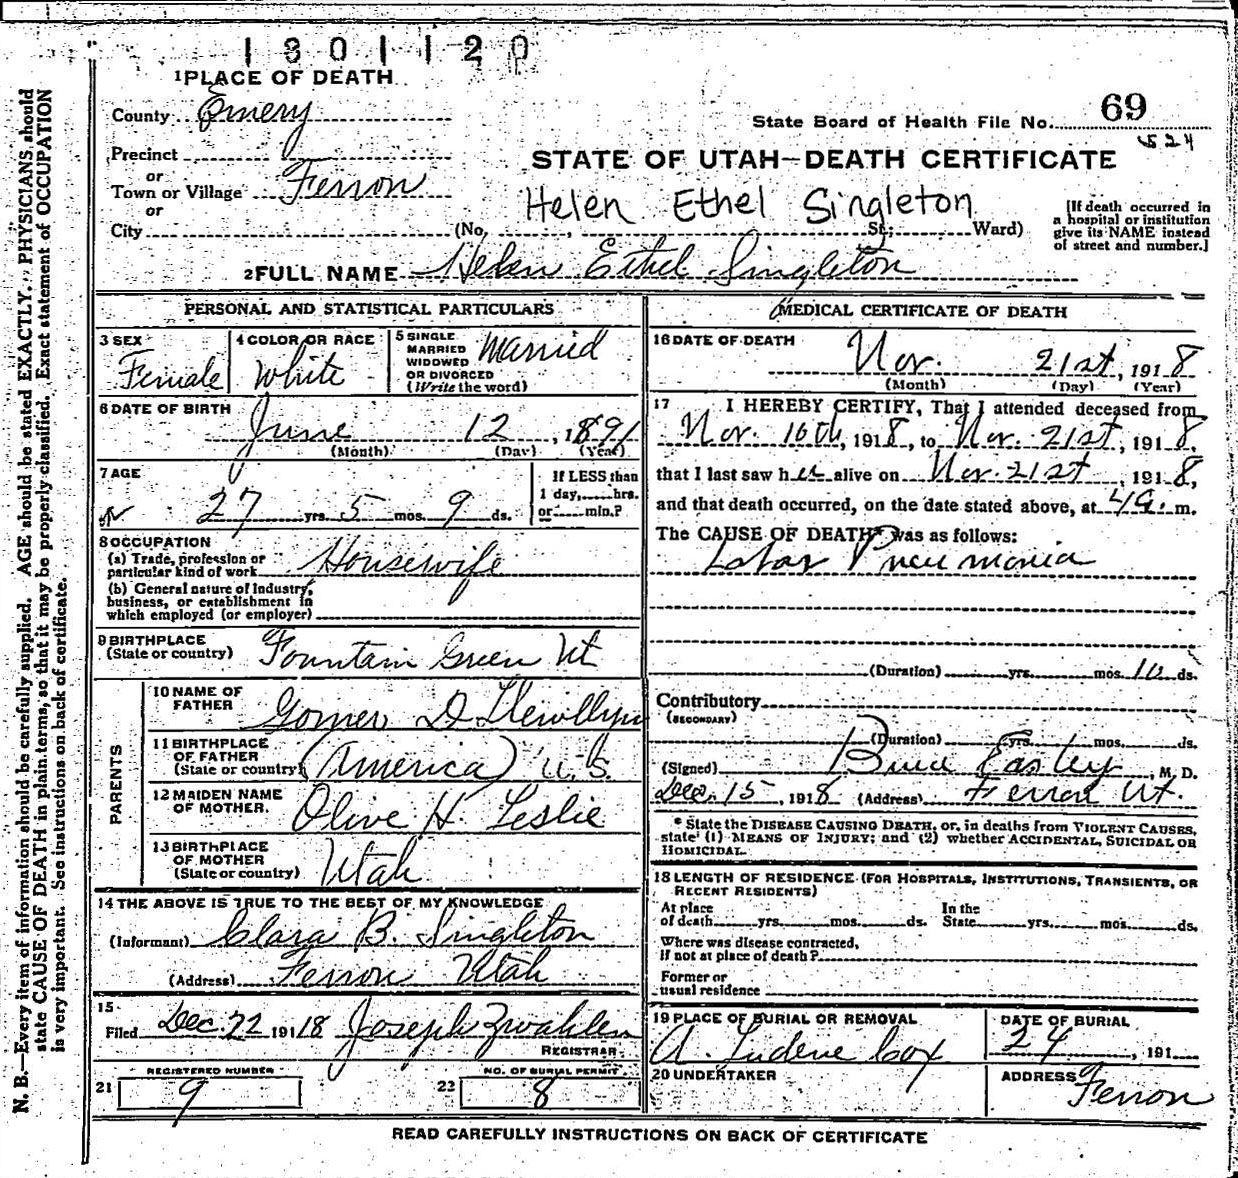 1301120
1 PLACE OF DEATH
County Emery
State Board of Health File No. 69
524
Precinct
or
Town or Village Ferron
or
City (No. , St; Ward)
STATE OF UTAH—DEATH CERTIFICATE
Helen Ethel Singleton
[If death occurred in
a hospital or institution
give its NAME instead
of street and number.]
2 FULL NAME Helen Ethel Singleton
PERSONAL AND STATISTICAL PARTICULARS
3 SEX
Female
4 COLOR OR RACE
White
5 SINGLE
MARRIED
WIDOWED
OR DIVORCED
(Write the word)
Married
6 DATE OF BIRTH
June 12, 1891
(Month) (Day) (Year)
7 AGE
27 yrs. 5 mos. 9 ds.
If LESS than
1 day, hrs.
or min.?
8 OCCUPATION
(a) Trade, profession or
particular kind of work Housewife
(b) General nature of industry,
business, or establishment in
which employed (or employer)
9 BIRTHPLACE
(State or country) Fountain Green Ut
PARENTS
10 NAME OF
FATHER
Gomer D Llewillyn
11 BIRTHPLACE
OF FATHER
(State or country) (America) U.S.
12 MAIDEN NAME
OF MOTHER
Olive H. Leslie
13 BIRTHPLACE
OF MOTHER
(State or country) Utah
14 THE ABOVE IS TRUE TO THE BEST OF MY KNOWLEDGE
(Informant) Clara B. Singleton
(Address) Ferron Utah
15
Filed Dec. 22 19118 Joseph Zwahlen
REGISTRAR
21 REGISTERED NUMBER
9
22 NO. OF BURIAL PERMIT
8
MEDICAL CERTIFICATE OF DEATH
16 DATE OF DEATH
Nov. 21st, 1918
(Month) (Day) (Year)
17 I HEREBY CERTIFY, That I attended deceased from
Nov. 16th, 1918, to Nov. 21st, 1918,
that I last saw her alive on Nov. 21st, 1918,
and that death occurred, on the date stated above, at 4 a. m.
The CAUSE OF DEATH* was as follows:
Lobar Pneumonia
(Duration) yrs. mos. 10 ds.
Contributory
(SECONDARY)
(Duration) yrs. mos. ds.
(Signed) Bruce Easley, M. D.
Dec. 15, 1918 (Address) Ferron Ut.
* State the DISEASE CAUSING DEATH, or, in deaths from VIOLENT CAUSES,
state (1) MEANS OF INJURY; and (2) whether ACCIDENTAL, SUICIDAL OR
HOMICIDAL.
18 LENGTH OF RESIDENCE (FOR HOSPITALS, INSTITUTIONS, TRANSIENTS, OR
RECENT RESIDENTS)
At place In the
of death yrs. mos. ds. State yrs. mos. ds.
Where was disease contracted,
If not at place of death?
Former or
usual residence
19 PLACE OF BURIAL OR REMOVAL
A. Ludene Cox
DATE OF BURIAL
24, 191
20 UNDERTAKER
ADDRESS
Ferron
READ CAREFULLY INSTRUCTIONS ON BACK OF CERTIFICATE
N. B.—Every item of information should be carefully supplied. AGE should be stated EXACTLY. PHYSICIANS should
state CAUSE OF DEATH in plain terms, so that it may be properly classified. Exact statement of OCCUPATION
is very important. See instructions on back of certificate.